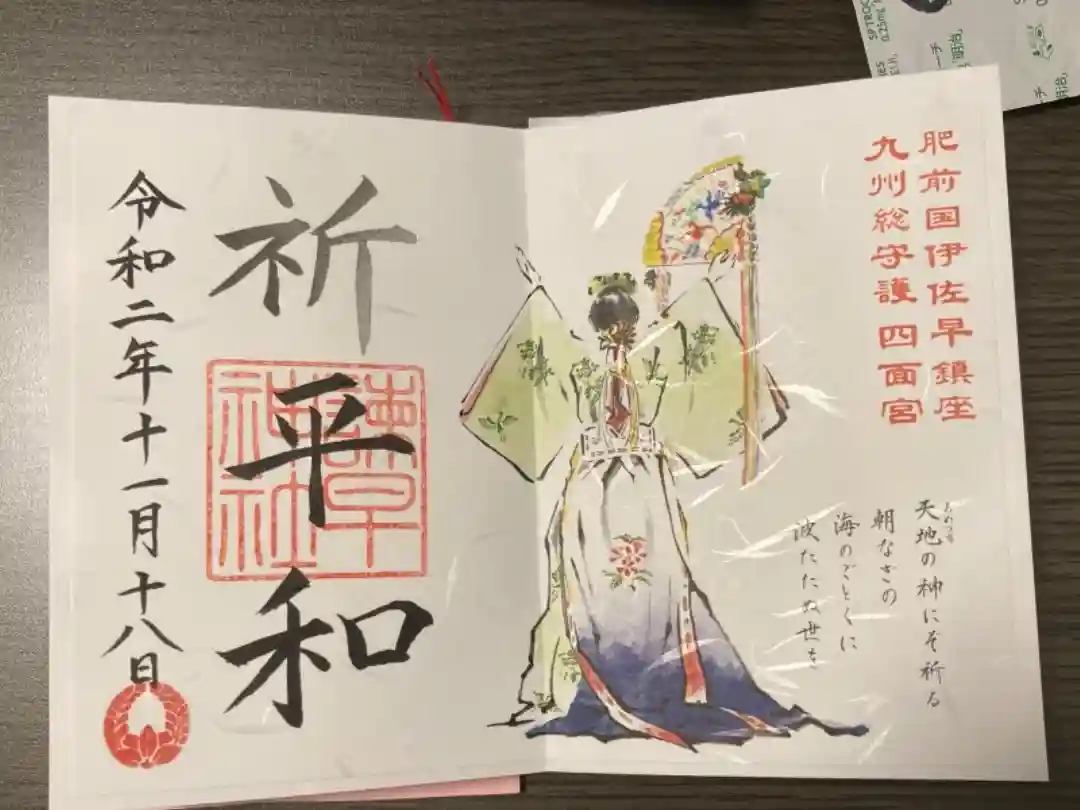 肥前国伊佐早鎮座
九州総守護 四面宮
天地の神にぞ祈る
あめつち
朝なぎの
海のごとくに
波たたぬ世を
祈平和
諫早神社
令和二年十一月十八日